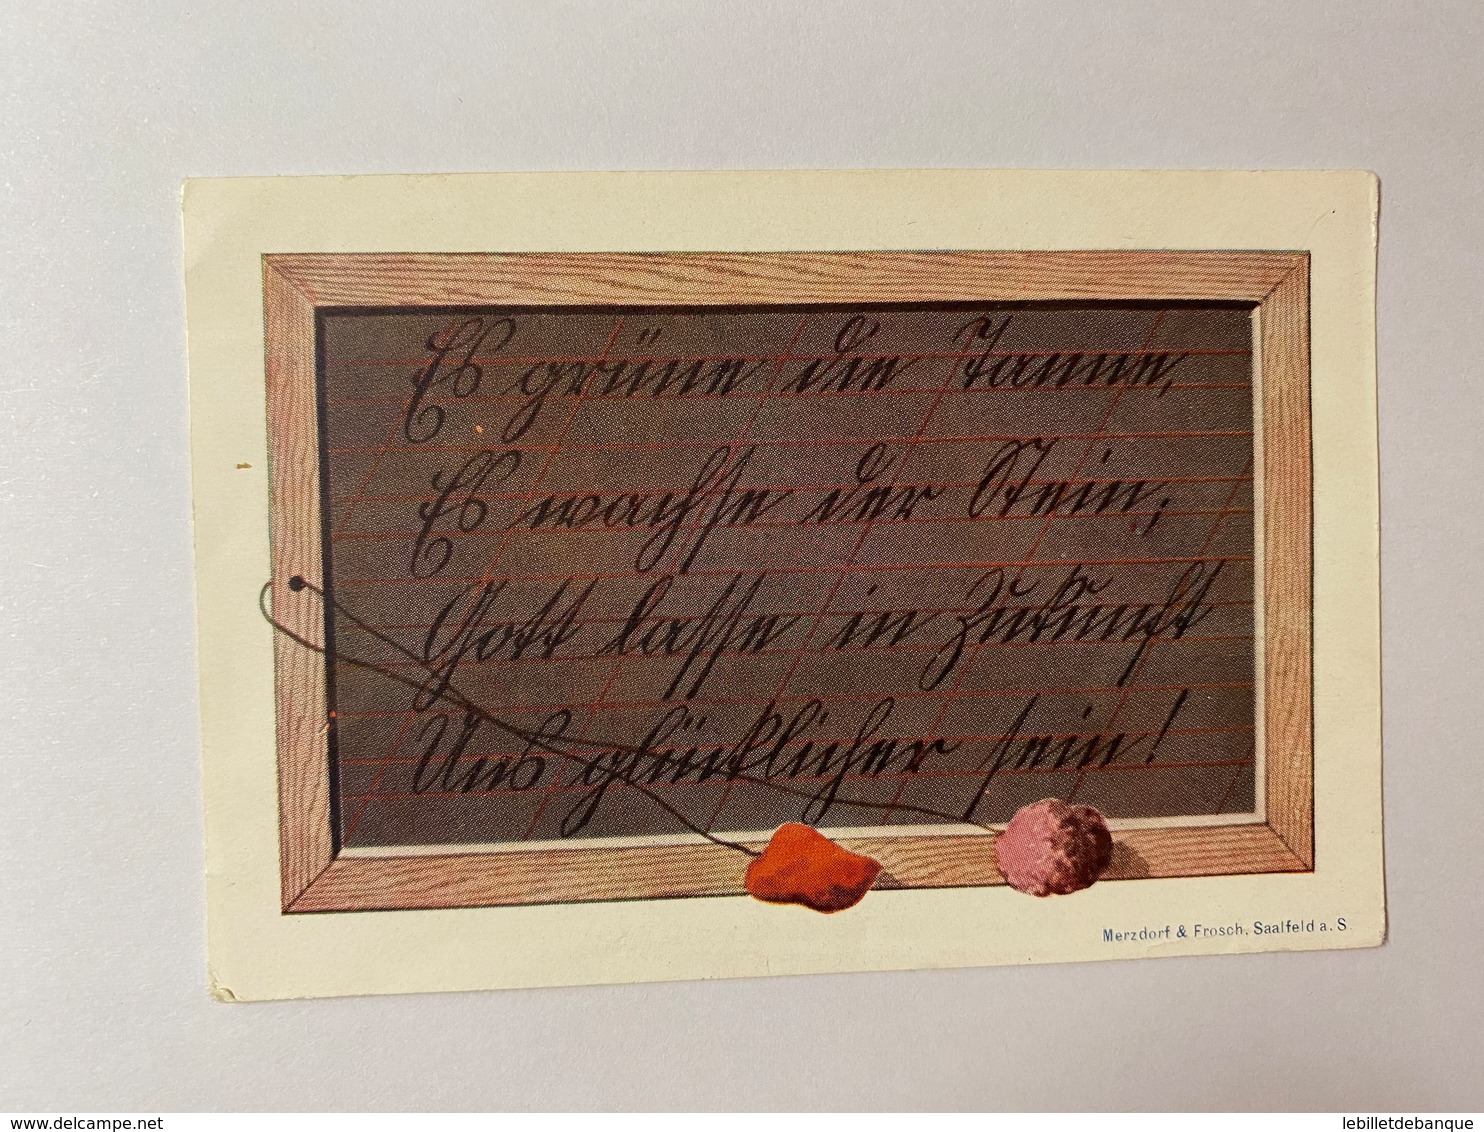 Es grüne die Tanne,
Es wachse der Stein,
Gott lasse in Zukunft
Uns glücklicher sein!
Merzdorf & Frosch, Saalfeld a. S.
delcampe.net
lebilletdebanque